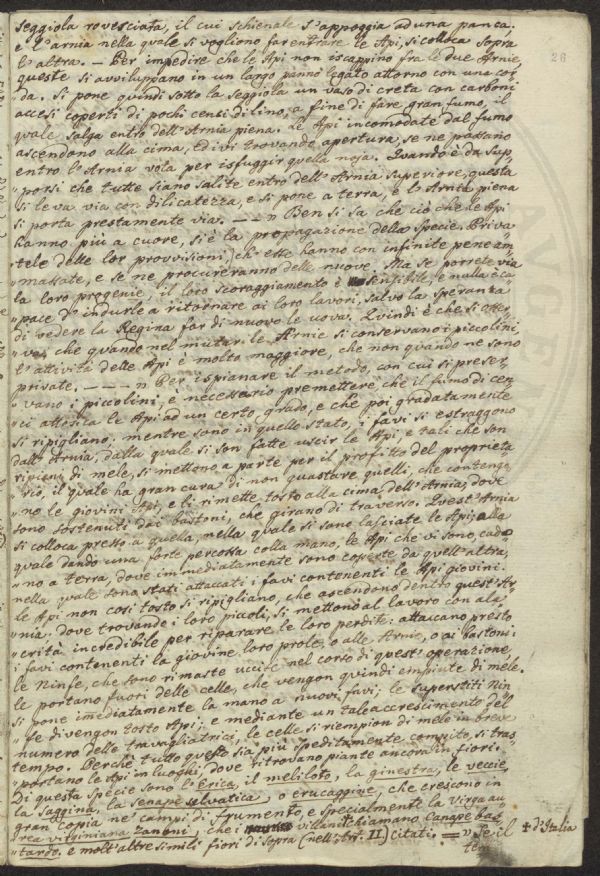 seggiola rovesciata, il cui schienale s'appoggia ad una panca,
e l'arnia nella quale si vogliono far entrare le Api, si colloca sopra
l'altra. – Per impedire che le Api non iscappino fra le due Arnie,
queste si avviluppano in un largo panno legato attorno con una cor
da. Si pone quindi sotto la seggiola un vaso di creta con carboni
accesi coperti di pochi cenci di lino, a fine di fare gran fumo, il
quale salga entro dell'Arnia piena. Le Api incomodate dal fumo
ascendono alla cima, ed ivi trovando apertura, se ne passano
entro l'Arnia vota per isfuggir quella noja. Quando è da sup„
„porsi che tutte siano salite entro dell'Arnia superiore, questa
si leva via con dilicatezza, e si pone a terra, e l'Arnia piena
si porta prestamente via. – – – „ Ben si sa che ciò che le Api
hanno più a cuore, si è la propagazione della specie. Priva„
„tele delle lor provvisioni, ch'esse hanno con infinite pene am„
„massate, e se ne procureranno delle nuove. Ma se porrete via
la loro progenie, il loro scoraggiamento è sensibile, e nulla è ca„
„pace d'indurle a ritornare ai loro lavori, salvo la speranza
di vedere la Regina far di nuovo le uova. Quindi è che si osser„
„va, che quando nel mutar le Arnie si conservano i piccolini,
l'attività delle Api è molto maggiore, che non quando ne sono
private. – – – – „ Per ispianare il metodo, con cui si preser„
„vano i piccolini, è necessario premettere, che il fumo di cen„
„ci attosica le Api ad un certo grado, e che poi gradatamente
si ripigliano. mentre sono in quello stato, i favi si estraggono
dall'Arnia, dalla quale si son fatte uscir le Api, e tali che son
ripieni di mele, si mettono a parte per il profitto del proprieta
„rio, il quale ha gran cura di non guastare quelli, che contengo„
„no le giovini Api, e li rimette tosto alla cima dell'Arnia, dove
sono sostenuti dai bastoni, che girano di traverso. Quest'Arnia
si colloca presso a quella, nella quale si sono lasciate le Api, alla
quale dando una forte percossa colla mano, le Api che vi sono, cado„
„no a terra, dove immediatamente sono coperte da quell'altra,
nella quale sono stati attaccati i favi contenenti le Api giovini.
le Api non così tosto si ripigliano, che ascendono dentro quest'Ar„
„nia. dove trovando i loro piccoli, si mettono al lavoro con ala„
„crità incredibile per riparare le loro perdite: attaccano presto
i favi contenenti la giovine loro prole, o alle Arnie, o ai bastoni:
le Ninfe, che sono rimaste uccise nel corso di quest'operazione,
le portano fuori delle celle, che vengon quindi empiute di mele.
si pone imediatamente la mano a nuovi favi; le superstiti Nin
„fe divengon tosto Api; e mediante un tale accrescimento del
numero delle travagliatrici, le celle si riempion di mele in breve
tempo. Perchè tutto questo sia più speditamente compito, si tras„
„portano le Api in luoghi, dove ritrovano piante ancora in fiori.
Di questa specie sono l'Erica, il meliloto, la ginestra, le veccie,
la saggina, la senape selvatica, o erucaggine, che crescono in
gran copia ne' campi di frumento, e specialmente la Virga au
rea virginiana Zanoni, che i villani + chiamano Canape bas
tardo. e molt'altre simili fiori di sopra (nell'Art. II) citati. = „ Se il + d'Italia
tem
26